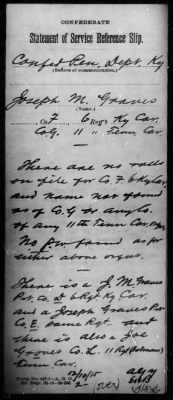 CONFEDERATE
Statement of Service Reference Slip.
Confed Pen. Dept. Ky
(Source of communication.)
Joseph M. Graves
Co. F 6 Regt. Ky Cav.
Co. G 11 " Tenn Cav.
There are no rolls
on file for Co. F. 6 Ky Cav
and name not found
as of Co. G or any Co.
of any 11th Tenn Cav.
No found as of
either above orgns.
There is a J. M. Graves
Pvt. Co. D 6 Regt Ky Cav.
and a Joseph Graves Pvt
Co. E. same Regt. and
there is also a Joe
Groves Co. L. 11 Regt (Holman's)
Tenn Cav.
(over)